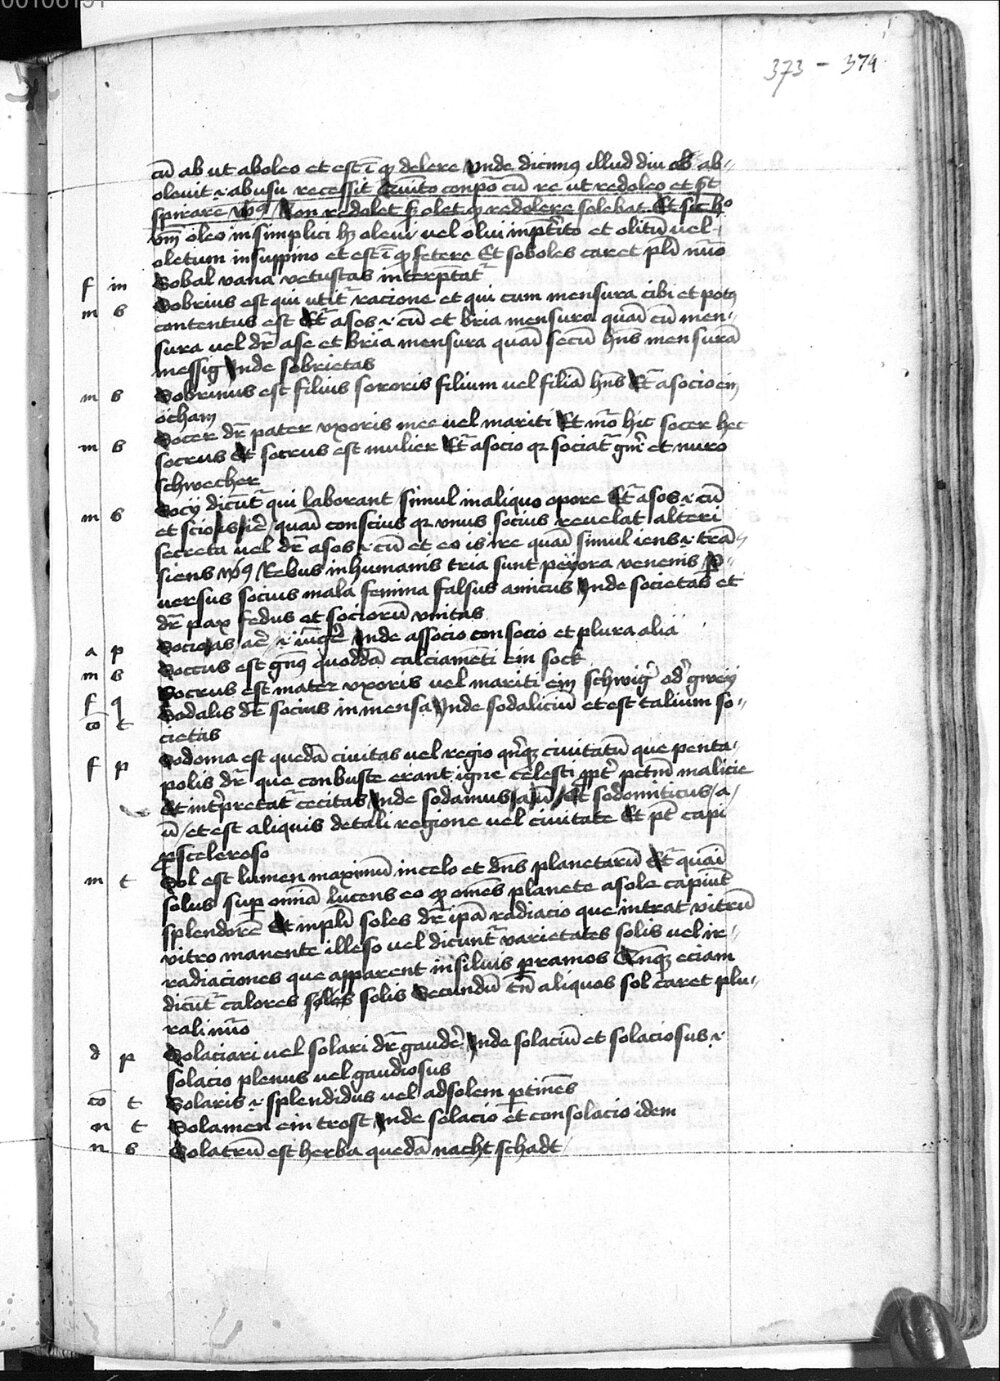 373 - 374
cū ab ut aboleo et est ī qđ delere Vnde dicimꝰ illud diu ab ab-
oleuit .i. ab usu recessit Quīto conpoͭ cū re ut redoleo et
spirare Non redolet sꝫ olet qđ redolere solebat Et sic
oleo in simplici hꝫ oleui vel olui in et olitū vel
oletum in suppino et est ī qđ fetere Et soboles caret plī
f m Sobal vana vetustas interp̄tat̄
m s Sobrius est qui utit̄ racione et qui cum mensura cibi et potꝰ
contentus est Et̄ a sos .i. cū et bria mensura quāi cū men-
sura vel dr̄ a se et bria mensura quāi secū hn̄s mensurā
messig Vnde sobrietas
m s Sobrinus est filius sororis filium vel filiā hn̄s Et̄ a socio ein
ocham
m s Socer dr̄ pater vxoris mee vel mariti Et hic socer hec
socrus Et socrus est mulier Et̄ a socio qꝛ sociat̄ gn̄r̄ et nuro
schwecher
m s Socij dicūt̄ qui laborant simul in aliquo opere Et̄ a sos .i. cū
et scio quāi conscius qꝛ vnus socius reuelat alteri
secreta vel dr̄ a sos .i. cū et eo is ire quāi simul iens .i. trā-
siens Rebus in humanis tria sunt peyora venenis
versus socius mala femina falsus amicus Vnde societas et
dr̄ pax fedus et sociorū vnitas
a p Vnde associo consocio et plura alia
m s Soccus est gn̄ꝰ quoddā calciamēti ein sock
f q Socrus est mater vxoris vel mariti ein schwigͥ odͥ
co t Sodalis dr̄ socius in mensa Vnde sodaliciū et est talium so-
cietas
f p Sodoma est quedā ciuitas vel regio civitatū que penta-
polis dr̄ que conbuste erant igne celesti ꝓpt̄ pctm̄ malicie
Et int̄pretat̄ cecitas Vnde sodamus a ū Et sodomiticus a
ū et est aliquis de tali regione vel ciuitate Et pt̄ capi
ꝓ sceleroso
m t Sol est lumen maximū in celo et dn̄s planetarū Et̄ quāi
solus suꝑ omīa lucens eo qđ omēs planete a sole capiūt
splendorē Et in plī soles dr̄ ip̄a radiacio que intrat vitrū
vitro manente illeso vel dicunt̄ varietates solis vel ir-
radiaciones que apparent in siluis ꝑ ramos eciam
dicūt̄ calores soles solis Secundū aliquos sol caret plu-
rali nūo
d p Solaciari vel solari dr̄ gaudeͬ Vnde solaciū et solaciosus .i.
solacio plenus vel gaudiosus
co t Solaris .i. splendidus vel ad solem ꝑtinēs
n t Solamen ein trost Vnde solacio et consolacio idem
n s Solatrū est herba quedā nacht schadt